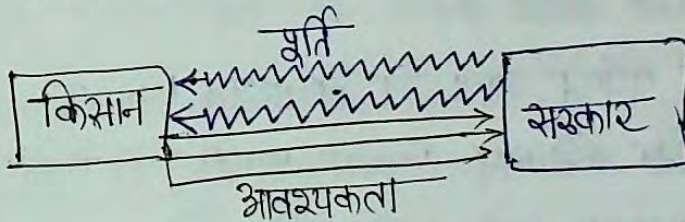 पूर्ति
किसान
सरकार
आवश्यकता